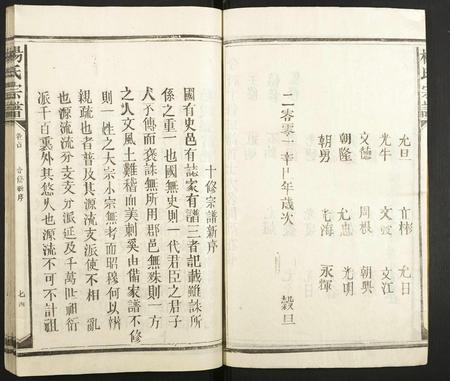 元旦 元牛 文德 朝隆 朝男
文 周根 尤忠 元海
元日 文江 朝興 光明 永輝
二零零一辛巳年歲次 穀旦
十修宗譜新序
國有史邑有誌家有譜三者記載雖殊所
係之重一也國無史則一代君臣之君子
不傳而褒誅無所用郡邑無殊則一方
之人文風土難稽而美刺奚由備家譜不修
則一姓之大宗小宗無考而昭穆何以辨
親疏也者普及其源流支派使不相亂
也源流流分支支分派延及千萬世祖衍
派千百裏外其悠久也源流不可不計祖
楊氏宗譜
卷首
十修新序
七四
楊氏宗譜